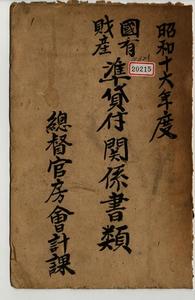 昭和十六年度
國有財産準貸付関係書類
20215
總督官房會計課